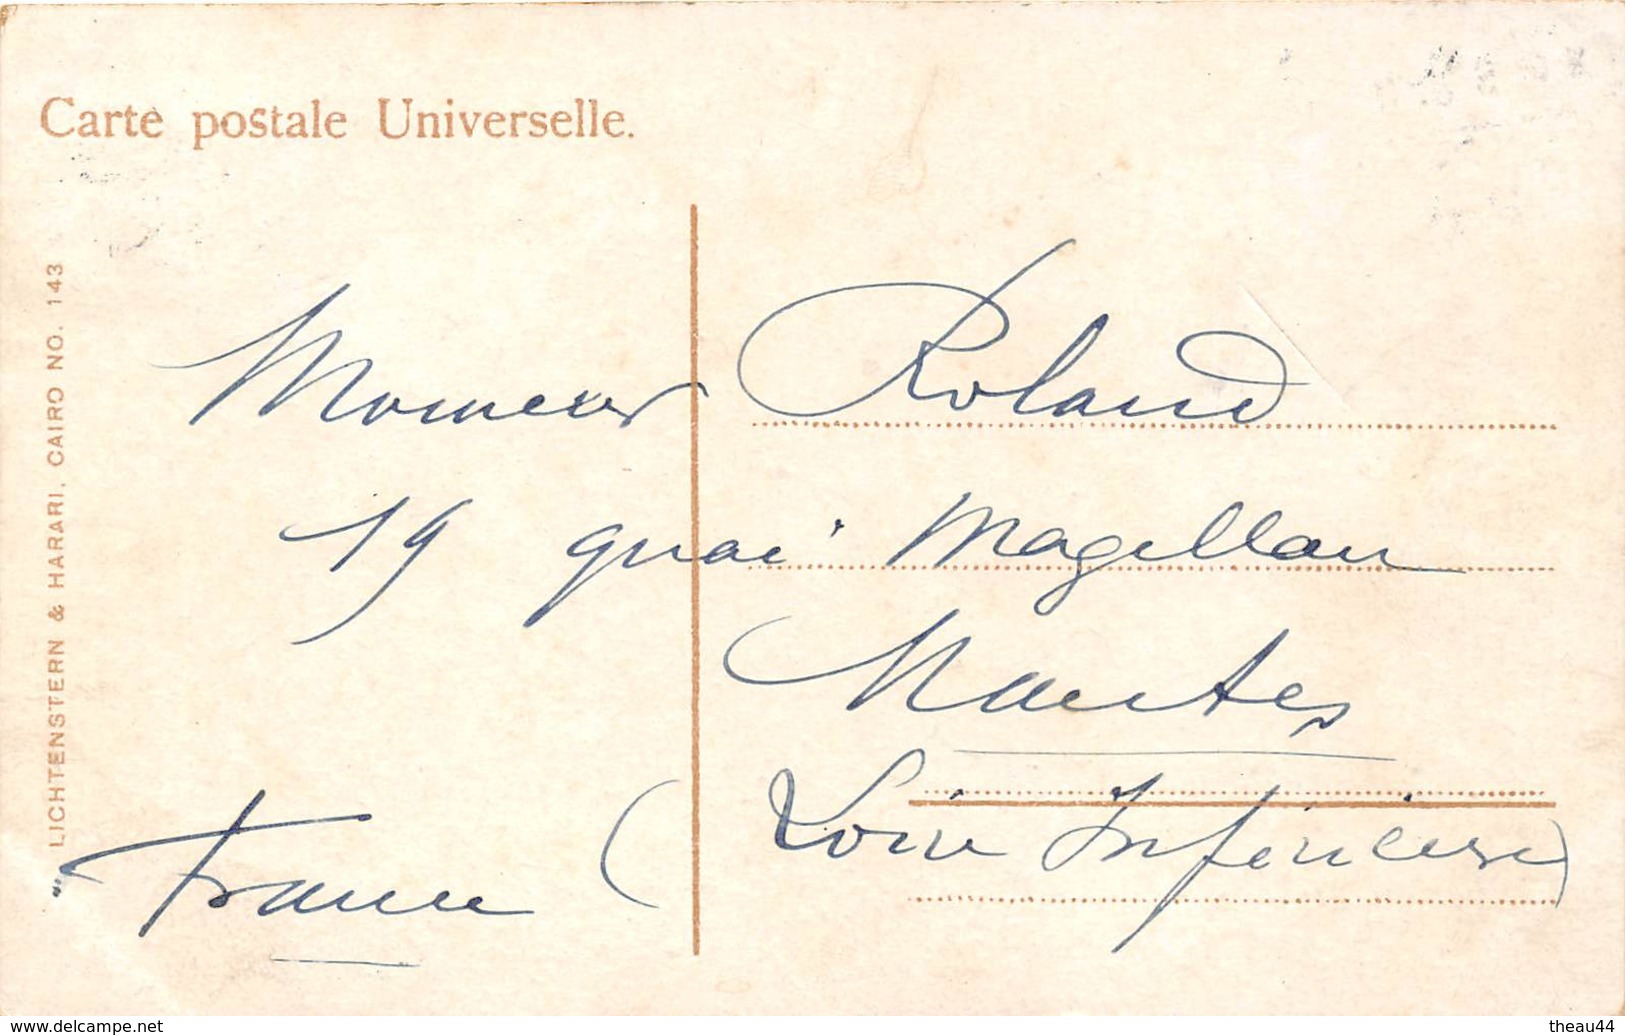 Carte postale Universelle.
LICHTENSTERN & HARARI, CAIRO NO. 143
Monsieur Roland
19 quai Magellan
Nantes
France (Loire Inférieure)
www.delcampe.net
theau44